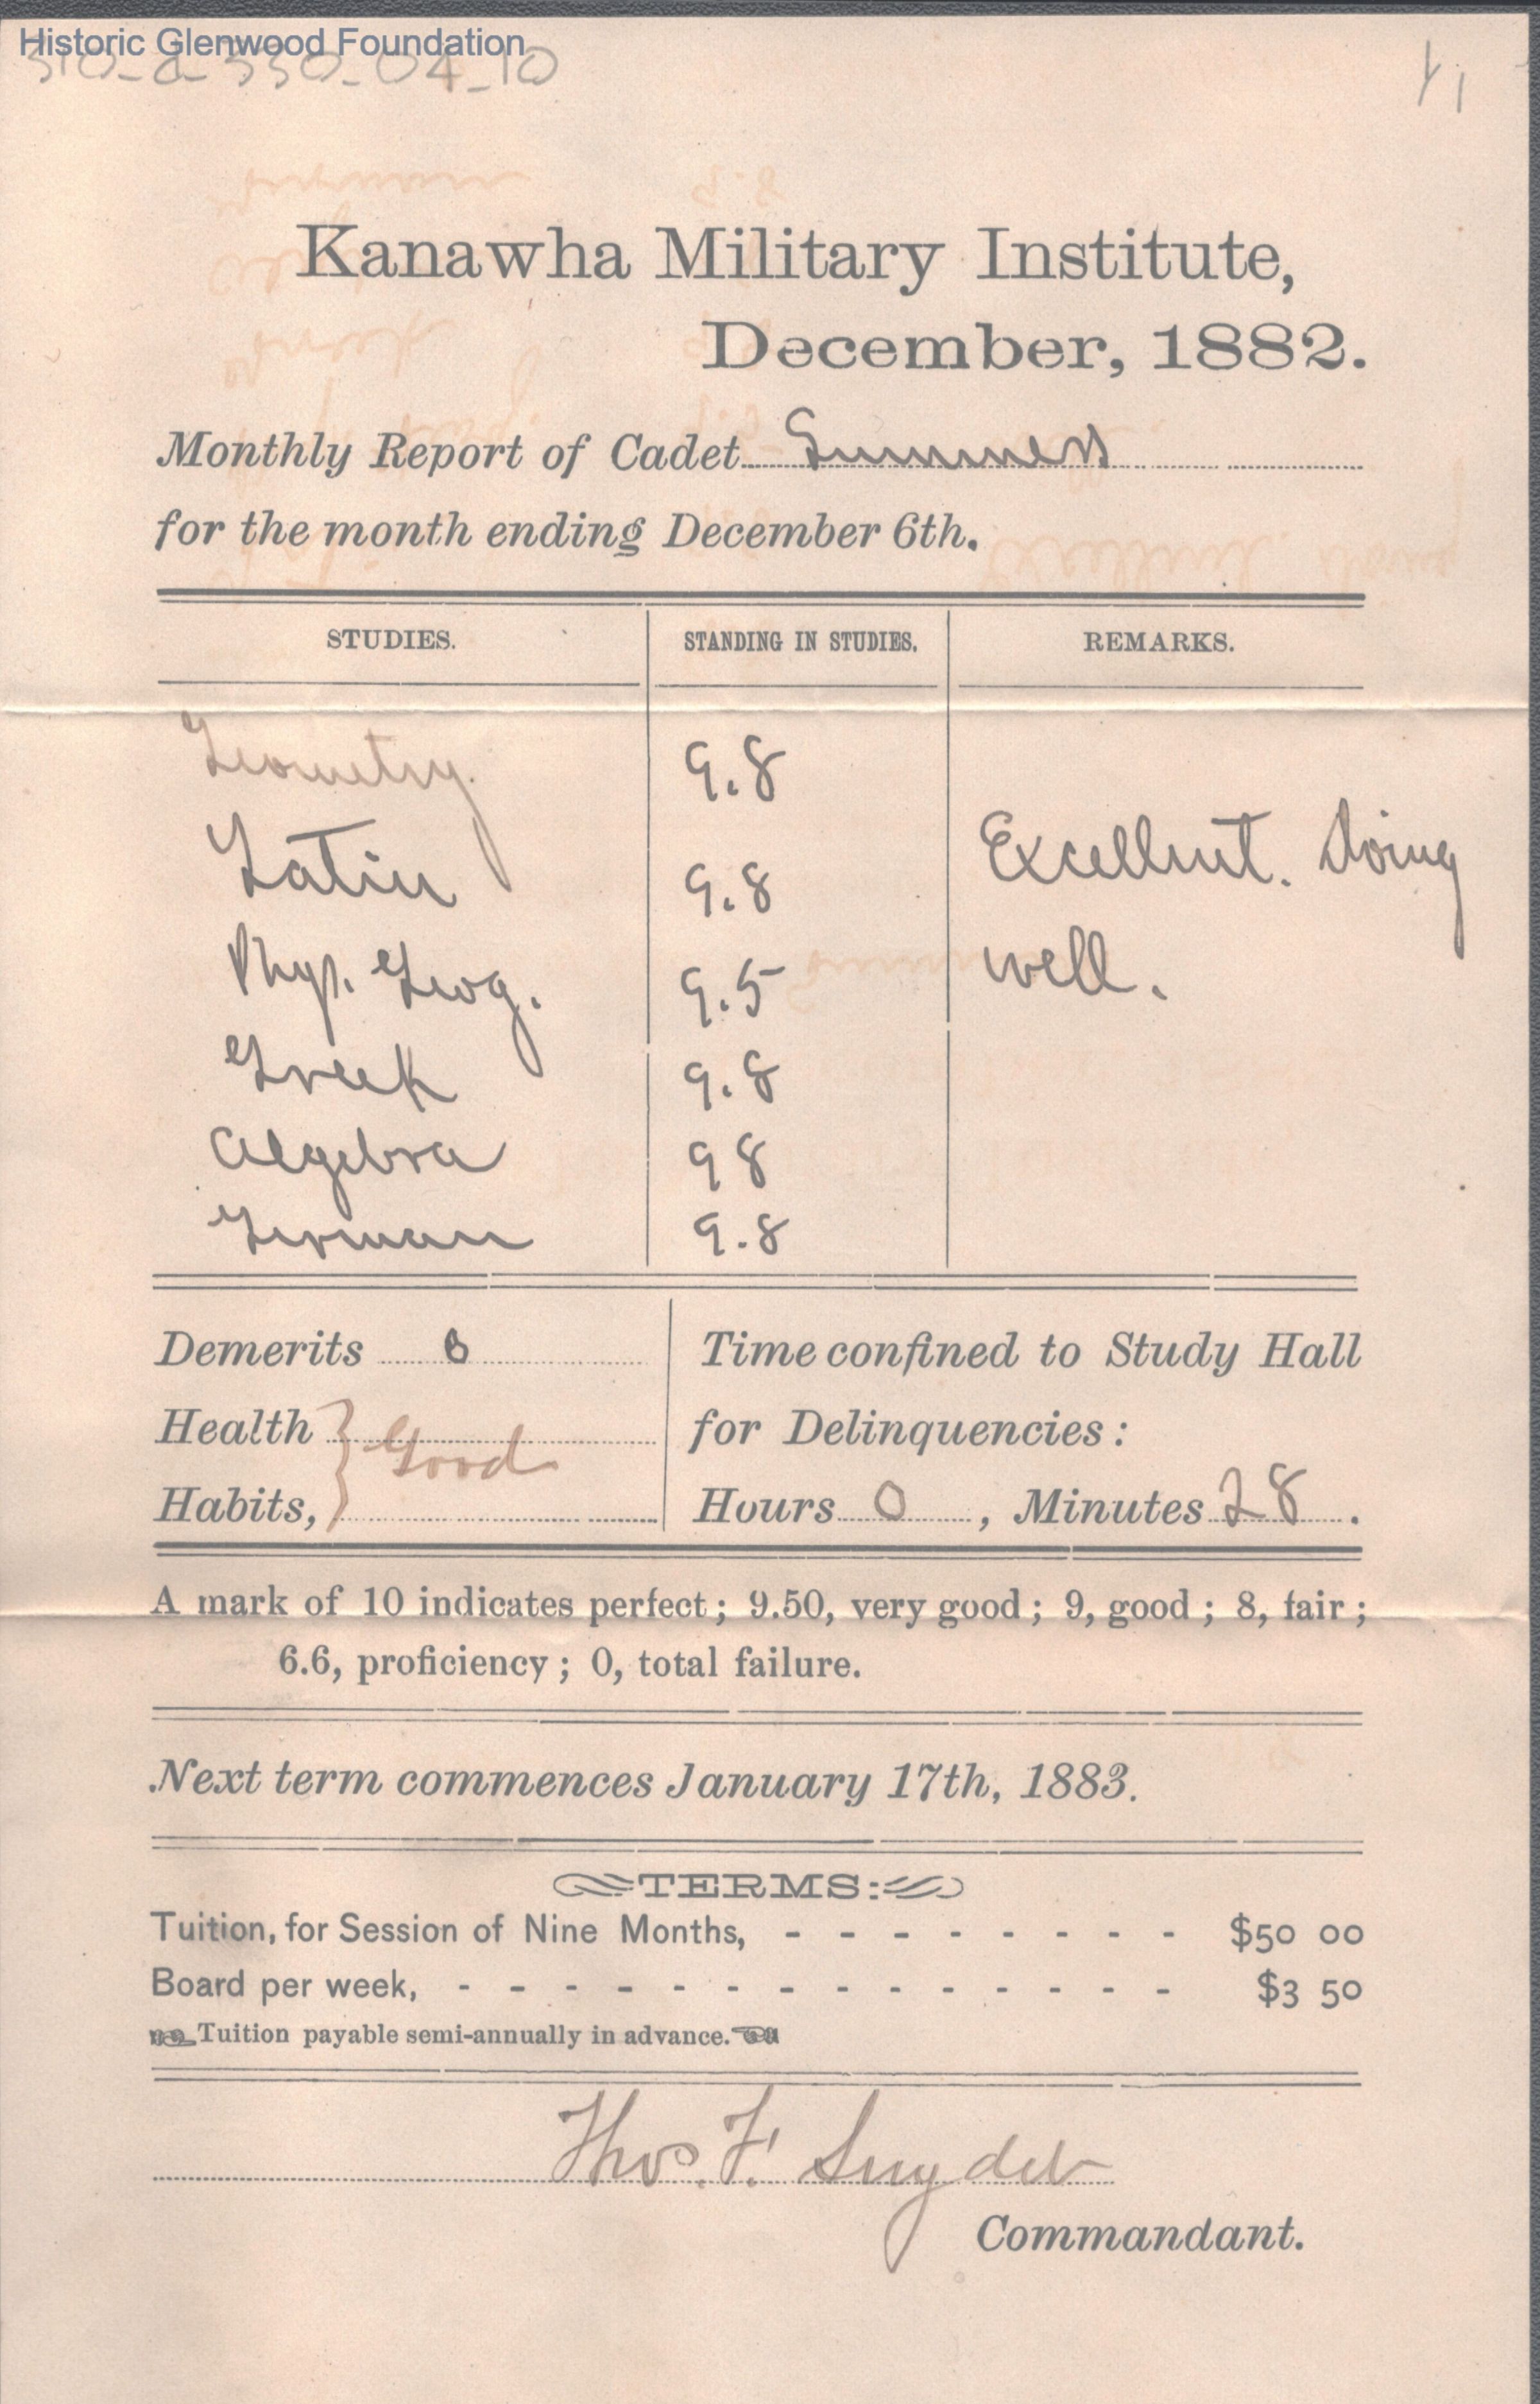 Historic Glenwood Foundation
310-a-330-04-10
Kanawha Military Institute,
December, 1882.
Monthly Report of Cadet Summers
for the month ending December 6th.
STUDIES. STANDING IN STUDIES. REMARKS.
Geometry. 9.8
Latin 9.8 Excellent. Doing
Phys. Geog. 9.5 well.
Greek 9.8
Algebra 98
German 9.8
Demerits 0 Time confined to Study Hall
Health } Good for Delinquencies:
Habits, Hours 0, Minutes 28.
A mark of 10 indicates perfect; 9.50, very good; 9, good; 8, fair;
6.6, proficiency; 0, total failure.
Next term commences January 17th, 1883.
TERMS:
Tuition, for Session of Nine Months, - - - - - - - - $50 00
Board per week, - - - - - - - - - - - - - - $3 50
Tuition payable semi-annually in advance.
Thos. F. Snyder
Commandant.